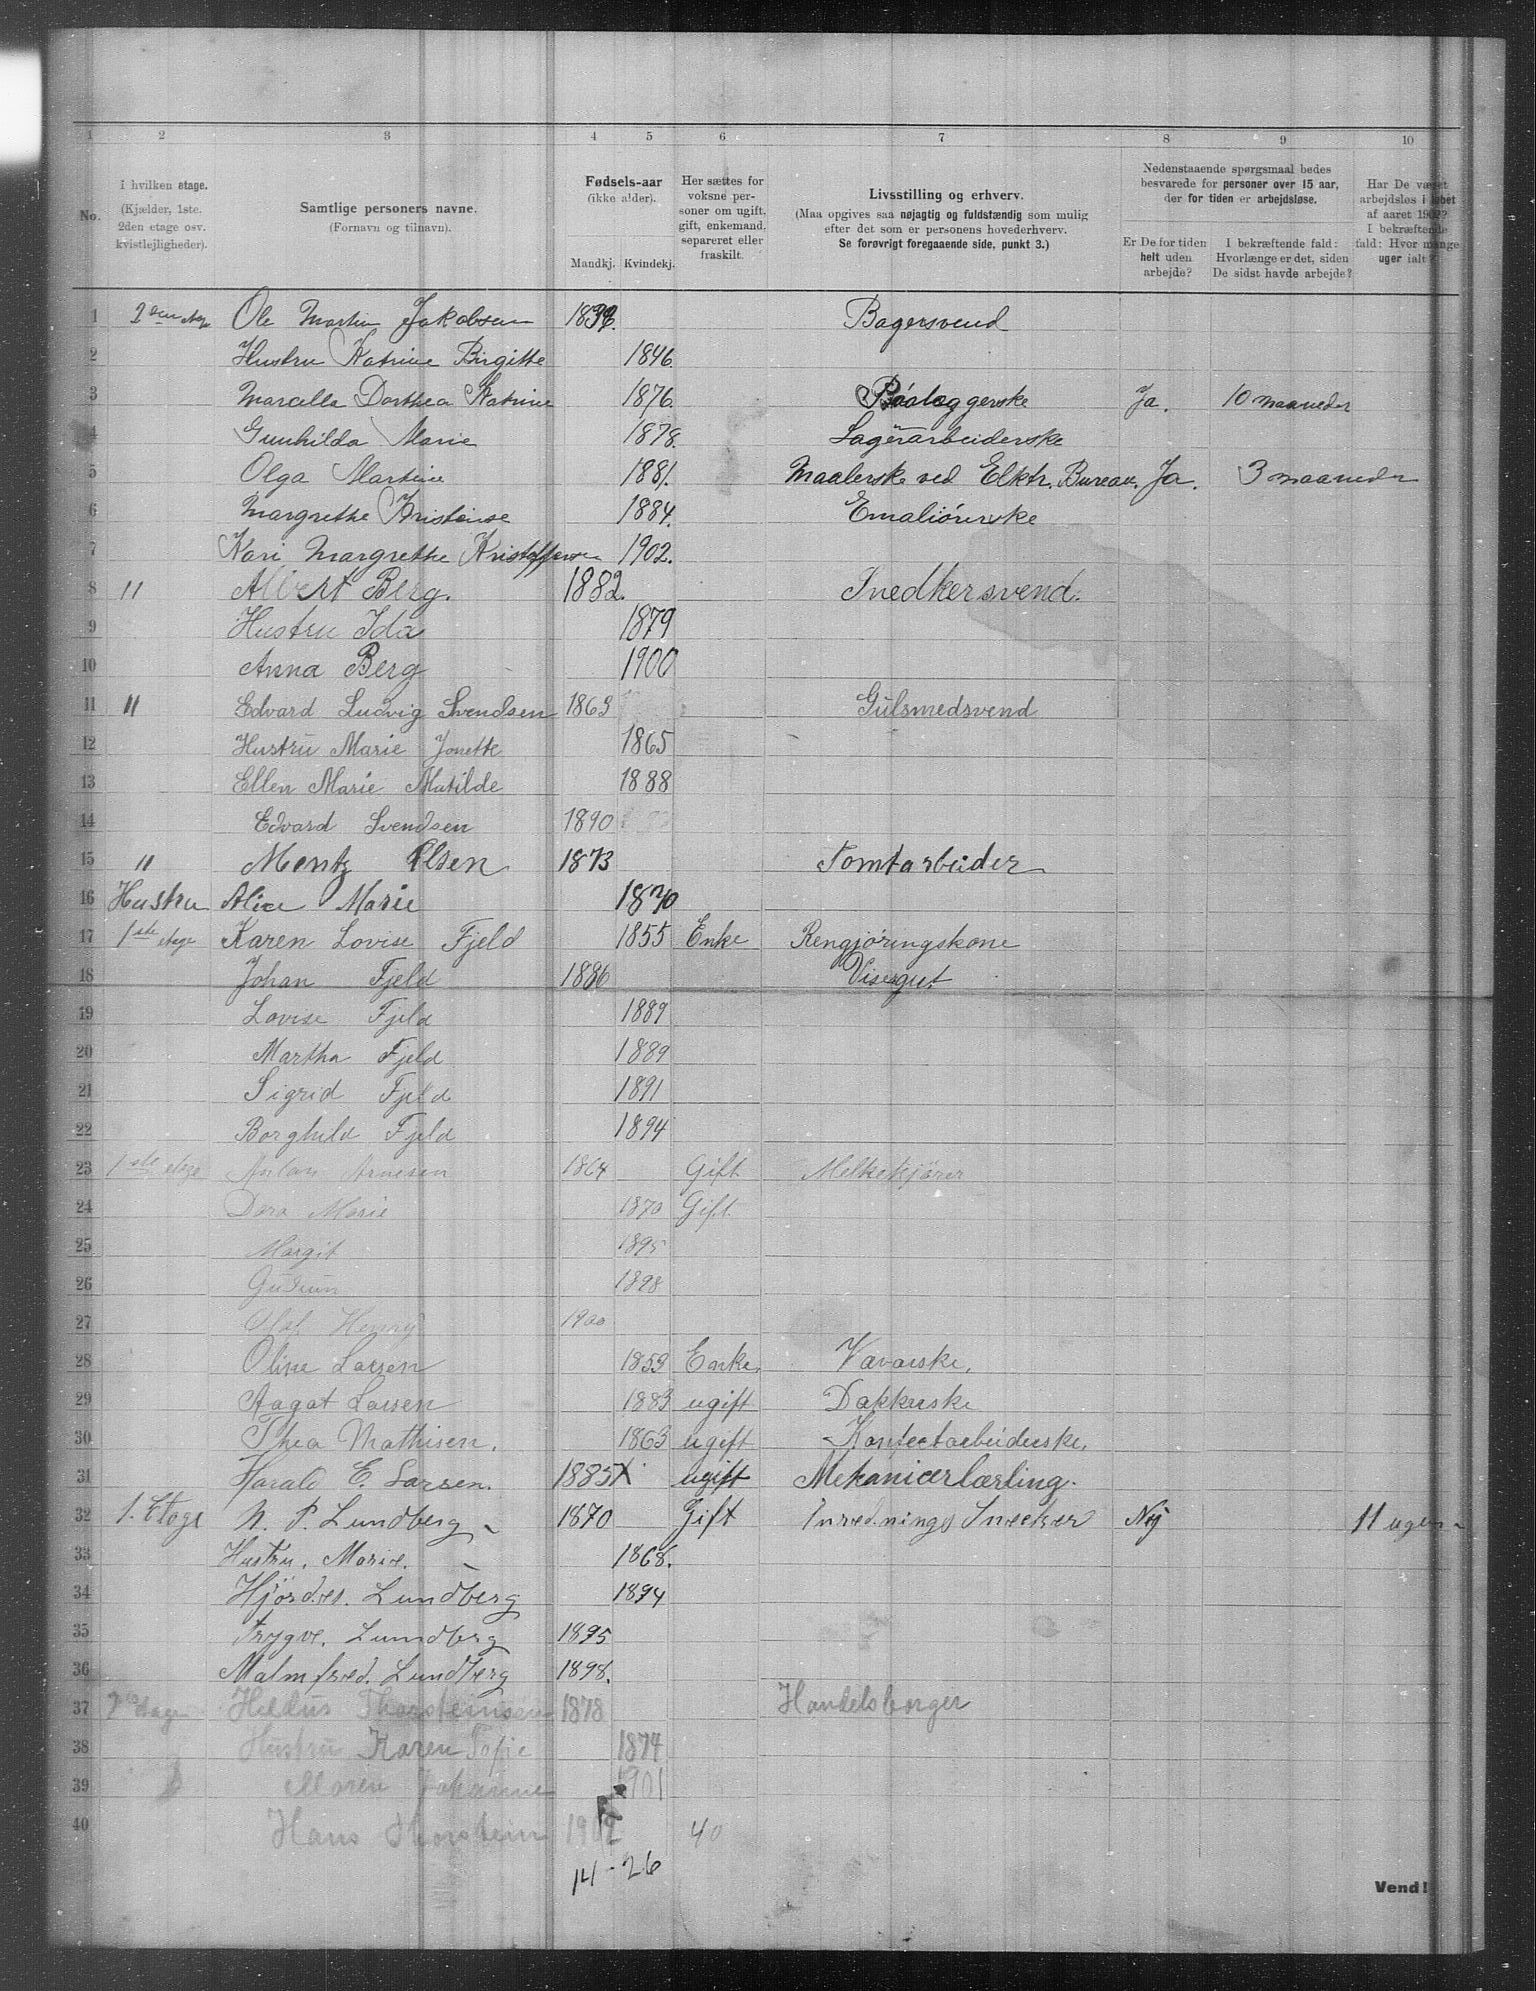 1 2 3 4 5 6 7 8 9 10
No.
I hvilken etage.
(Kjælder, 1ste. 2den etage osv. kvistlejligheder).
Samtlige personers navne.
(Fornavn og tilnavn).
Fødsels-aar
(ikke alder).
Mandkj. Kvindekj.
Her sættes for voksne personer om ugift, gift, enkemand, separeret eller fraskilt.
Livsstilling og erhverv.
(Maa opgives saa nøjagtig og fuldstændig som mulig efter det som er personens hovederhverv.
Se forøvrigt foregaaende side, punkt 3.)
Nedenstaaende spørgsmaal bedes besvarede for personer over 15 aar, der for tiden er arbejdsløse.
Er De for tiden helt uden arbejde?
I bekræftende fald: Hvorlænge er det, siden De sidst havde arbejde?
Har De været arbejdsløs i løbet af aaret 1902? I bekræftende fald: Hvor mange uger ialt?
1 2den etage Ole Martin Jakobsen Bagersvend
2 Hustru Katrine Birgitte 1846.
3 Marcella Dorthea Katrine 1876. Ja. 10 maaneder
4 Gunhilda Marie 1878. Lagerarbeiderske
5 Olga Martine 1881. Maalerske ved Elktr. Bureau. Ja. 3 maaneder
6 Margrethe Kristense 1884. Emaliørerske
7 Kari Margrethe Kristoffersen 1902.
8 " Albert Berg. 1882. Snedkersvend.
9 Hustru Ida 1879
10 Anna Berg 1900
11 " Edvard Ludvig Svendsen 1863 Gulsmedsvend
12 Hustru Marie Jonette 1865
13 Ellen Marie Matilde 1888
14 Edvard Svendsen 1890
15 " Mentz Olsen 1873 Tomtarbeider
16 Hustru Alice Marie 1870
17 1ste etage Karen Lovise Fjeld 1855 Enke Rengjøringskone
18 Johan Fjeld 1886 Visergut
19 Lovise Fjeld 1889
20 Martha Fjeld 1889
21 Sigrid Fjeld 1891
22 Borghild Fjeld 1894
23 1ste etage Anton Arnesen 1864 Gift Melkekjører
24 Dora Marie 1870 Gift
25 Margit 1895
26 Gudrun 1898
27 Olaf Henry 1900
28 Oline Larsen 1859 Enke. Væverske.
29 Aagot Larsen 1883 ugift Dakkerske
30 Thea Mathisen. 1863 ugift Konfectarbeiderske.
31 Harald E. Larsen. 1885 X ugift Mekanicerlærling.
32 1. Etage N. P. Lundberg 1870 Gift Inrednings Snecker Nej 11 uger
33 Hustru. Marie. 1868.
34 Hjørdes. Lundberg 1894
35 Trygve. Lundberg 1895
36 Malmfred. Lundberg 1898.
37 2den etage Thorsteinsen 1878 Handelsborger
38 Hustru Karen Sofie 1874
39 Maren Johanne 1901
40 Hans Thorstein 1902 40
14-26
Vend!